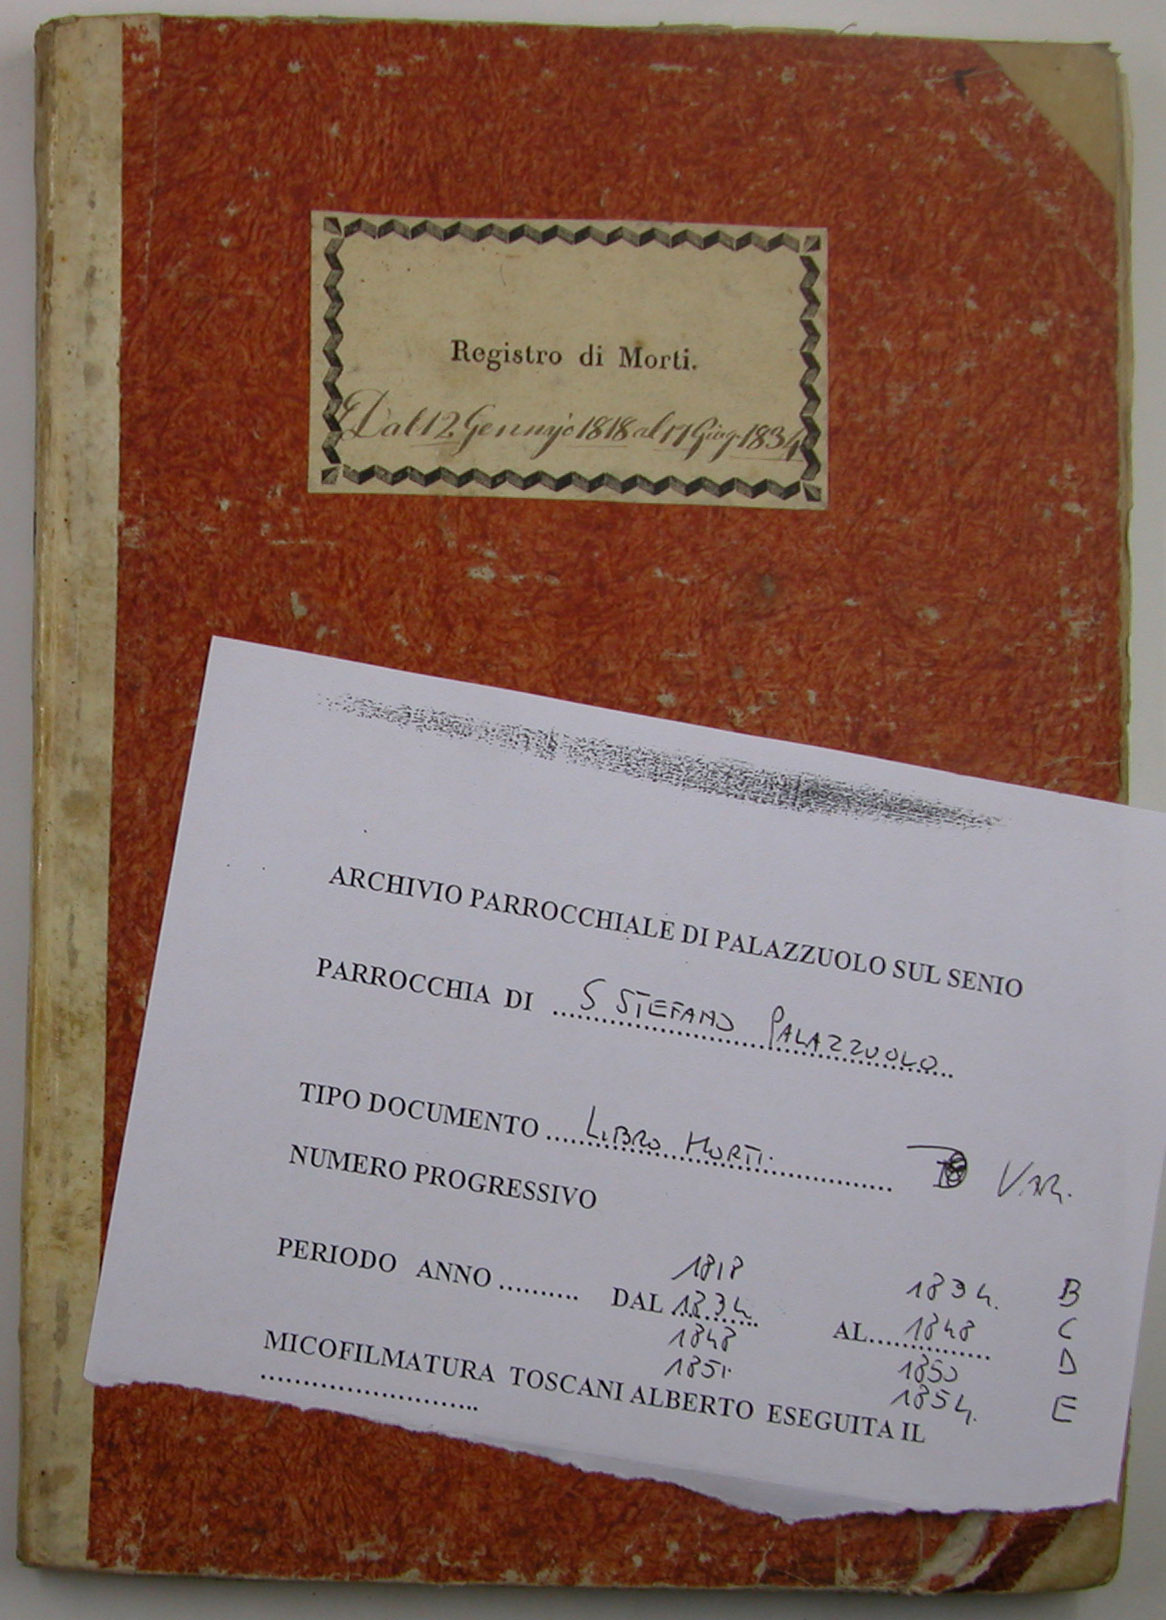 Registro di Morti.
Dal 12 Gennajo 1818 al 17 Giug. 1834
ARCHIVIO PARROCCHIALE DI PALAZZUOLO SUL SENIO
PARROCCHIA DI S STEFANO PALAZZUOLO
TIPO DOCUMENTO LIBRO MORTI. VAR.
NUMERO PROGRESSIVO
1818 1834. B
PERIODO ANNO .......... DAL 1834. AL 1848 C
1848 1850 D
1851 1854. E
MICOFILMATURA TOSCANI ALBERTO ESEGUITA IL
..........................